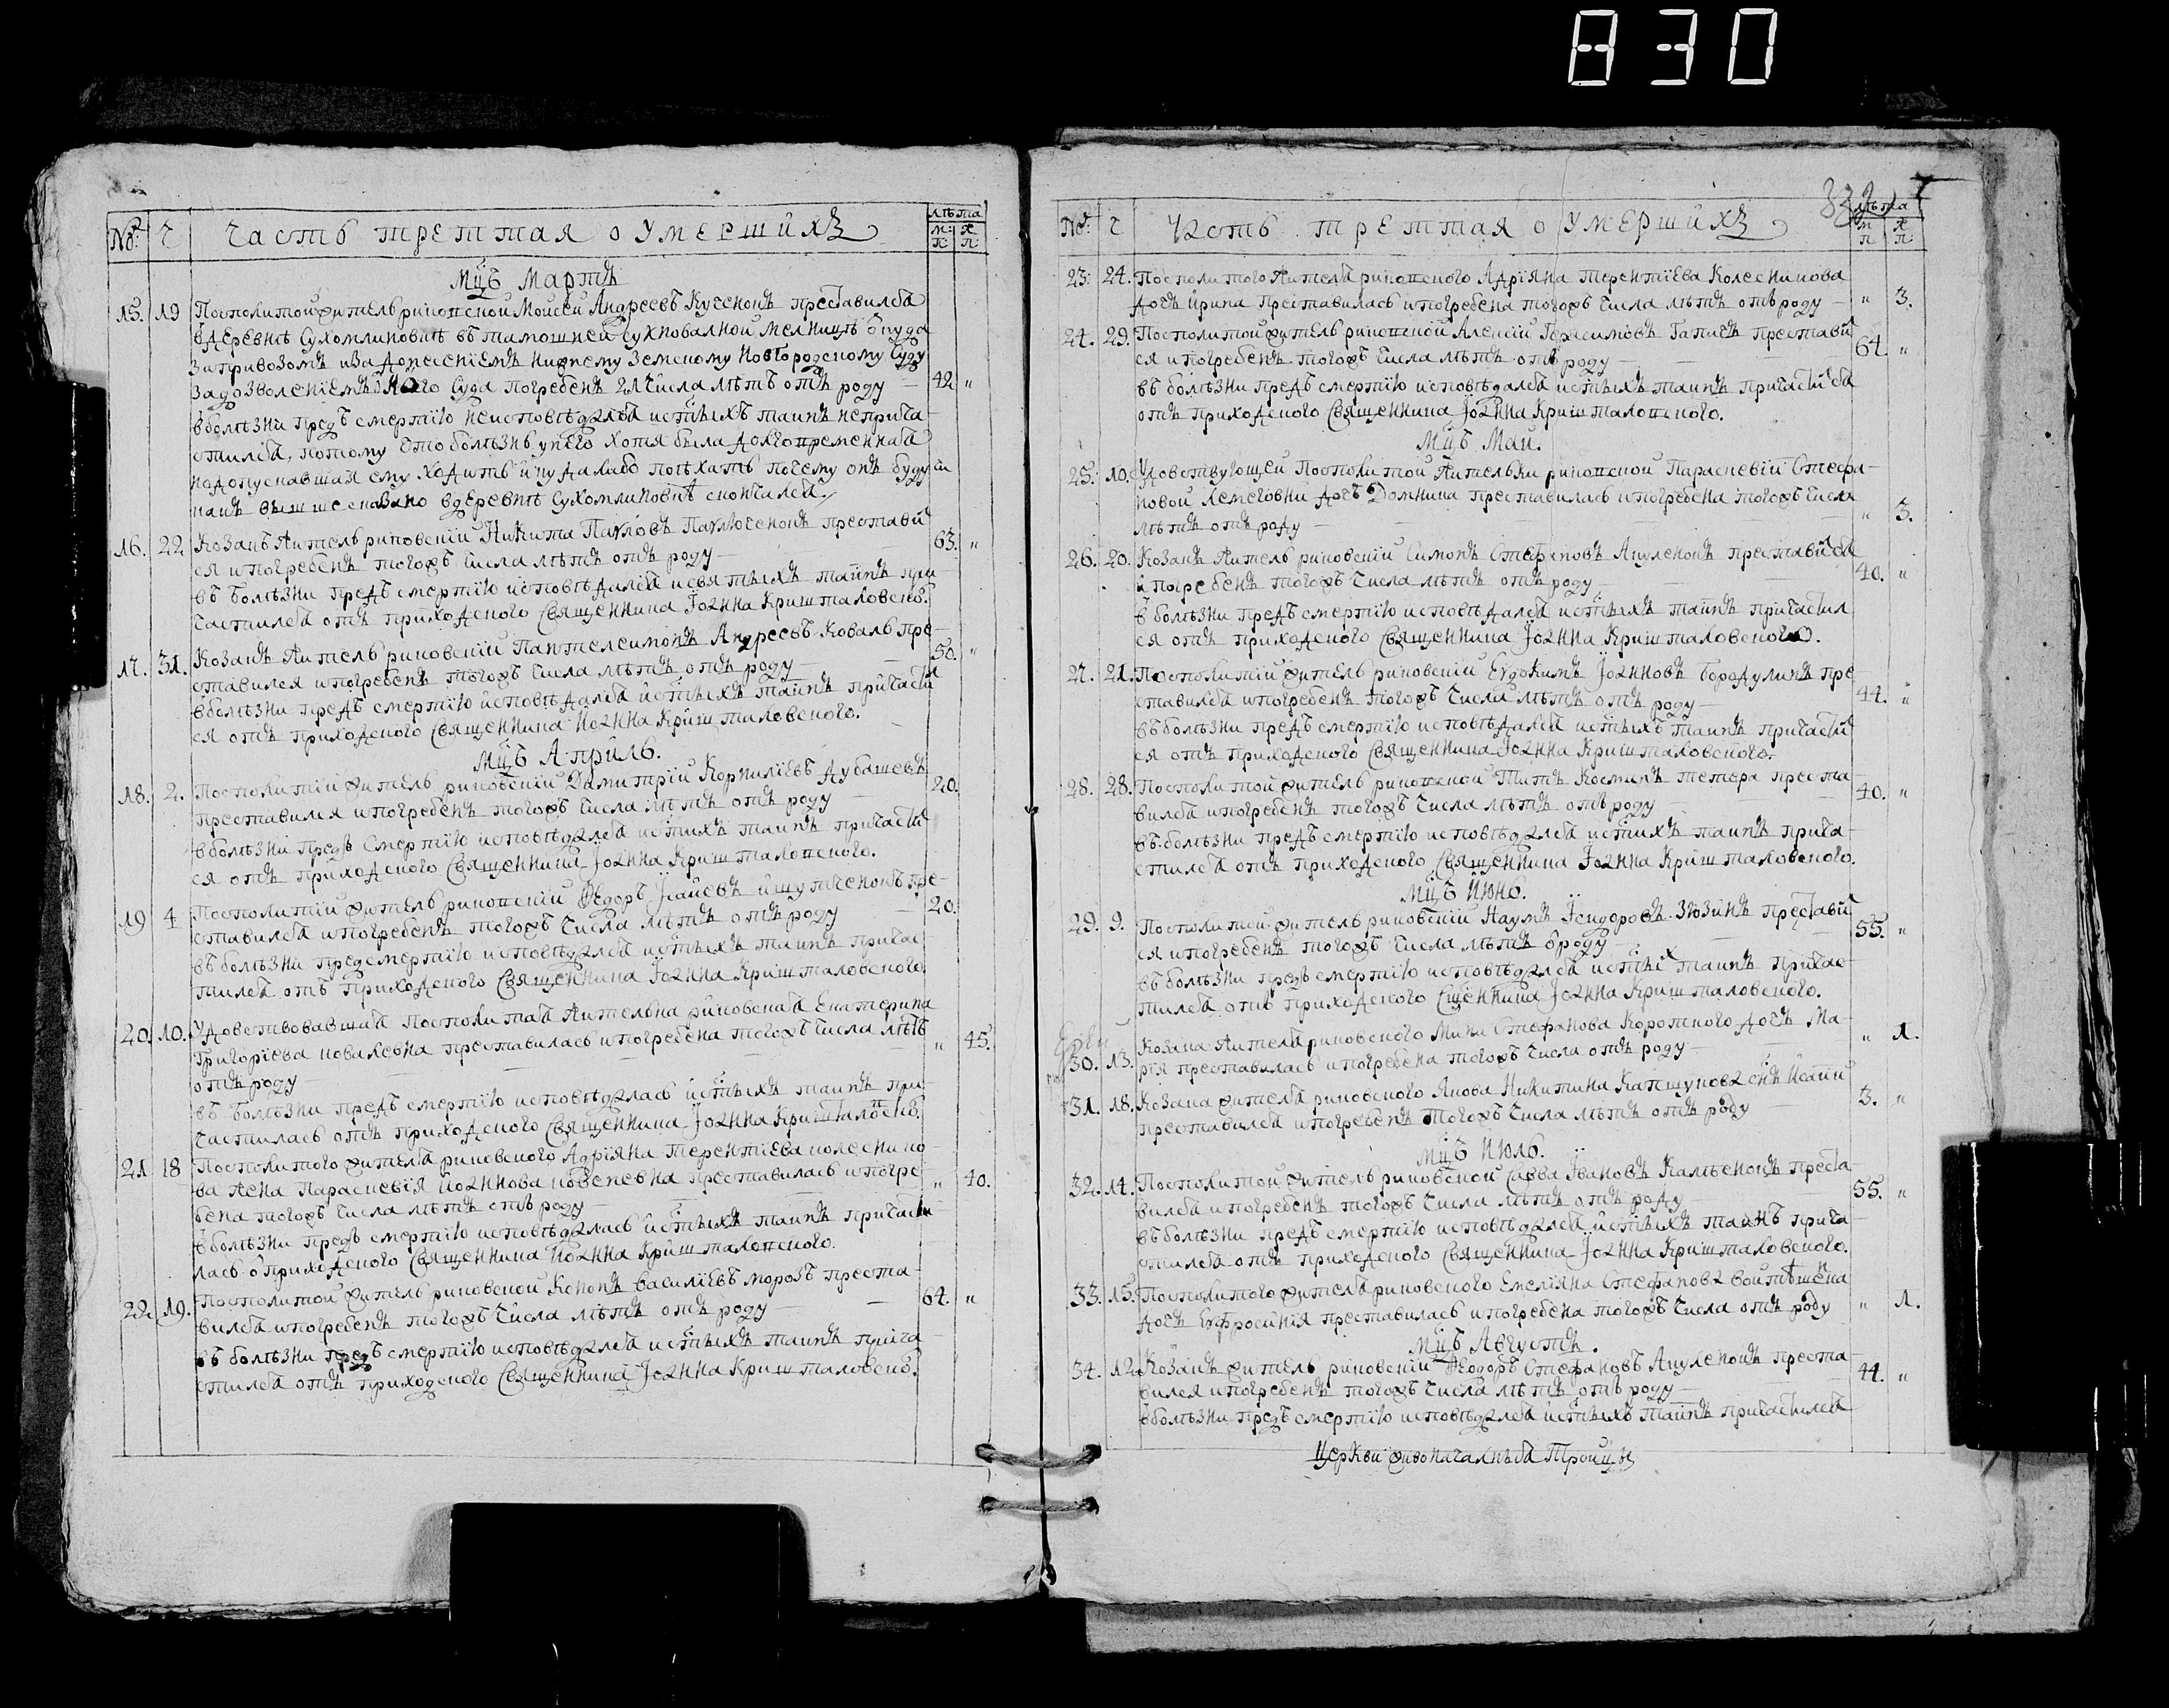 830
№: Ч Часть треттая о умершихъ лѣта м: п: ж: п:
Мцъ Мартъ
15. 19 Посполитой житель риковской Моисей Андреевъ Кученокъ преставился
вдеревнѣ Сухомлиновкѣ въ тамошней сукновалной мелницѣ
Заправозомъ иЗа донесениемъ нижнему Земскому Новгородскому Суду
Задозволениемъ оного Суда погребенъ 21 числа лѣтъ отъ роду — 42 „
в болѣзни предъ смертїю неисповѣдался истыхъ таинъ неприча-
стился, потому что болѣзнь унего хотя была долговременная
недопускавшая ему ходить и куда либо поехать почему онъ будучи
какъ вышшесказано вдеревнѣ Сухомлиновкѣ скончался
16. 22 Козакъ житель риковскїй Никита Павловъ Павлюченокъ престави
ся ипогребенъ тогожъ числа лѣтъ отъ роду — 63. „
въ болѣзни предъ смертїю исповѣдался исвятыхъ таинъ при-
частился отъ приходского Священника Іоанна Криштаповско.
17. 31. Козакъ житель риковскїй Пантелеимонъ Андреевъ Коваль пре-
ставился ипогребенъ тогожъ числа лѣтъ отъ роду — 50. „
вболѣзни предъ смертїю исповѣдался истыхъ таинъ причасти
ся отъ приходского Священника Иоанна Криштаповского.
Мцъ Априль.
18. 2. Посполитїй житель риковскїй Дамитрїй Корнилїевъ Дубашевъ
преставился ипогребенъ тогожъ числа лѣтъ отъ роду — 20.
вболѣзни предъ Смертїю исповѣдался истихъ таинъ причасти
ся отъ приходского Священника Іоанна Криштаповского.
19 4 Посполитїй житель риковскїй Федоръ Ісаиевъ пре-
ставился ипогребенъ тогожъ числа лѣтъ отъ роду — 20.
въ болѣзни предсмертїю исповѣдался истыхъ таинъ причас-
тился отъ приходского Священника Іоанна Криштаповского
20. 10. Удовствовавшая посполитая жителька риковская Екатерина
Григорїева ковалевна преставилась ипогребена тогожъ числа лѣтъ
отъ роду — „ 45.
въ болѣзни предъ смертїю исповѣдалась истыхъ таинъ при-
частилась отъ приходского Священника Іоанна Криштаповско.
21. 18 Посполитого жителя риковского Адрїяна Терентїева колеснико-
ва жена Параскевїя Иоаннова преставилась ипогре-
бена тогожъ числа лѣтъ отъ роду — „ 40.
вболѣзни предъ смертїю исповѣдалась истыхъ таинъ причасти-
лась о приходского Священника Иоанна Криштаповского.
22. 19. Посполитой житель риковской Кононъ Василїевъ морозъ преста-
вился ипогребенъ тогожъ числа лѣтъ отъ роду — 64. „
въ болѣзни предъ смертїю исповѣдался истыхъ таинъ прича-
стился отъ приходского Священника Іоанна Криштаповско.
№: Ч Часть треттая о умершихъ лѣта м п ж п:
23: 24. Посполитого жителя риковского Адрїяна Терентїева Колесникова
дочъ Ирина преставилась ипогребена тогожъ числа лѣтъ отъ роду — „ 3.
24. 29. Посполитой житель риковской Алексїй Герасимовъ преста
ся ипогребенъ тогожъ числа лѣтъ отъ роду — 64. „
въ болѣзни предъ смертїю исповѣдался истыхъ таинъ причастися
отъ приходского Священника Іоанна Криштаповского.
Мцъ Май.
25: 10. Удовствующей Посполитой жительки риковской Параскевїи Стефа-
новой дочъ Домникїя преставилась ипогребена тогожъ числа
лѣтъ отъ роду — „ 3.
26. 20. Козакъ житель риковскїй Симонъ Стефановъ Акуленокъ преставися
и погребенъ тогожъ числа лѣтъ отъ роду — 40. „
в болѣзни предъ смертїю исповѣдался истыхъ таинъ причастил
ся отъ приходского Священника Іоанна Криштаповского.
27. 21. Посполитїй житель риковскїй Евдокимъ Іоанновъ Бородулинъ пре-
ставился ипогребенъ тогожъ числа лѣтъ отъ роду — 44. „
въ болѣзни предъ смертїю исповѣдался истыхъ таинъ причасти
ся отъ приходского Священника Іоанна Криштаповского.
28. 28. Посполитой житель риковской Титъ Косминъ тетера преста-
вился ипогребенъ тогожъ числа лѣтъ отъ роду — 40. „
въ болѣзни предъ смертїю исповѣдался истихъ таинъ прича-
стился отъ приходского Священника Іоанна Криштаповского.
Мцъ Июнь.
29. 9. Посполитой житель риковскїй Наумъ Ісидоровъ Зюзинъ престави
ся ипогребенъ тогожъ числа лѣтъ о роду — 55. „
въ болѣзни предъ смертїю исповѣдался истыхъ таинъ причас-
тился отъ приходского Сщенника Іоанна Криштаповского.
30. 13. Козака жителя риковского Мини Стефанова Короткого дочъ Ма-
рїя преставилась ипогребена тогожъ числа отъ роду — „ 1.
31. 18. Козака жителя риковского Якова Никитина сынъ
преставился ипогребенъ тогожъ числа лѣтъ отъ роду — 3. „
Мцъ Июль.
32. 14. Посполитой житель риковской Савва Івановъ преста-
вился ипогребенъ тогожъ числа лѣтъ отъ роду — 55. „
въ болѣзни предъ смертїю исповѣдался истыхъ таинъ прича-
стился отъ приходского Священника Іоанна Криштаповского.
33. 15. Посполитого жителя риковского Емелїяна Стефанова
дочъ Евфросинїя преставилась ипогребена тогожъ числа отъ роду „ 1.
Мцъ Августъ.
34. 12. Козакъ житель риковскїй Феодоръ Стефановъ Акуленокъ преста-
вился ипогребенъ тогожъ числа лѣтъ отъ роду — 44. „
вболѣзни предъ смертїю исповѣдался истыхъ таинъ причастился
Церкви живоначалныя Тройцы